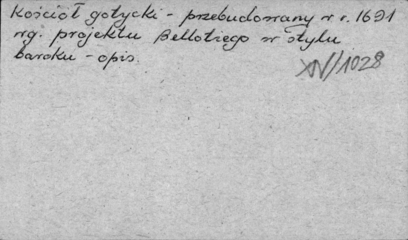 Kościół gotycki - przebudowany w r. 1691
wg. projektu Bellotiego w stylu
baroku - opis.
XIV/1028